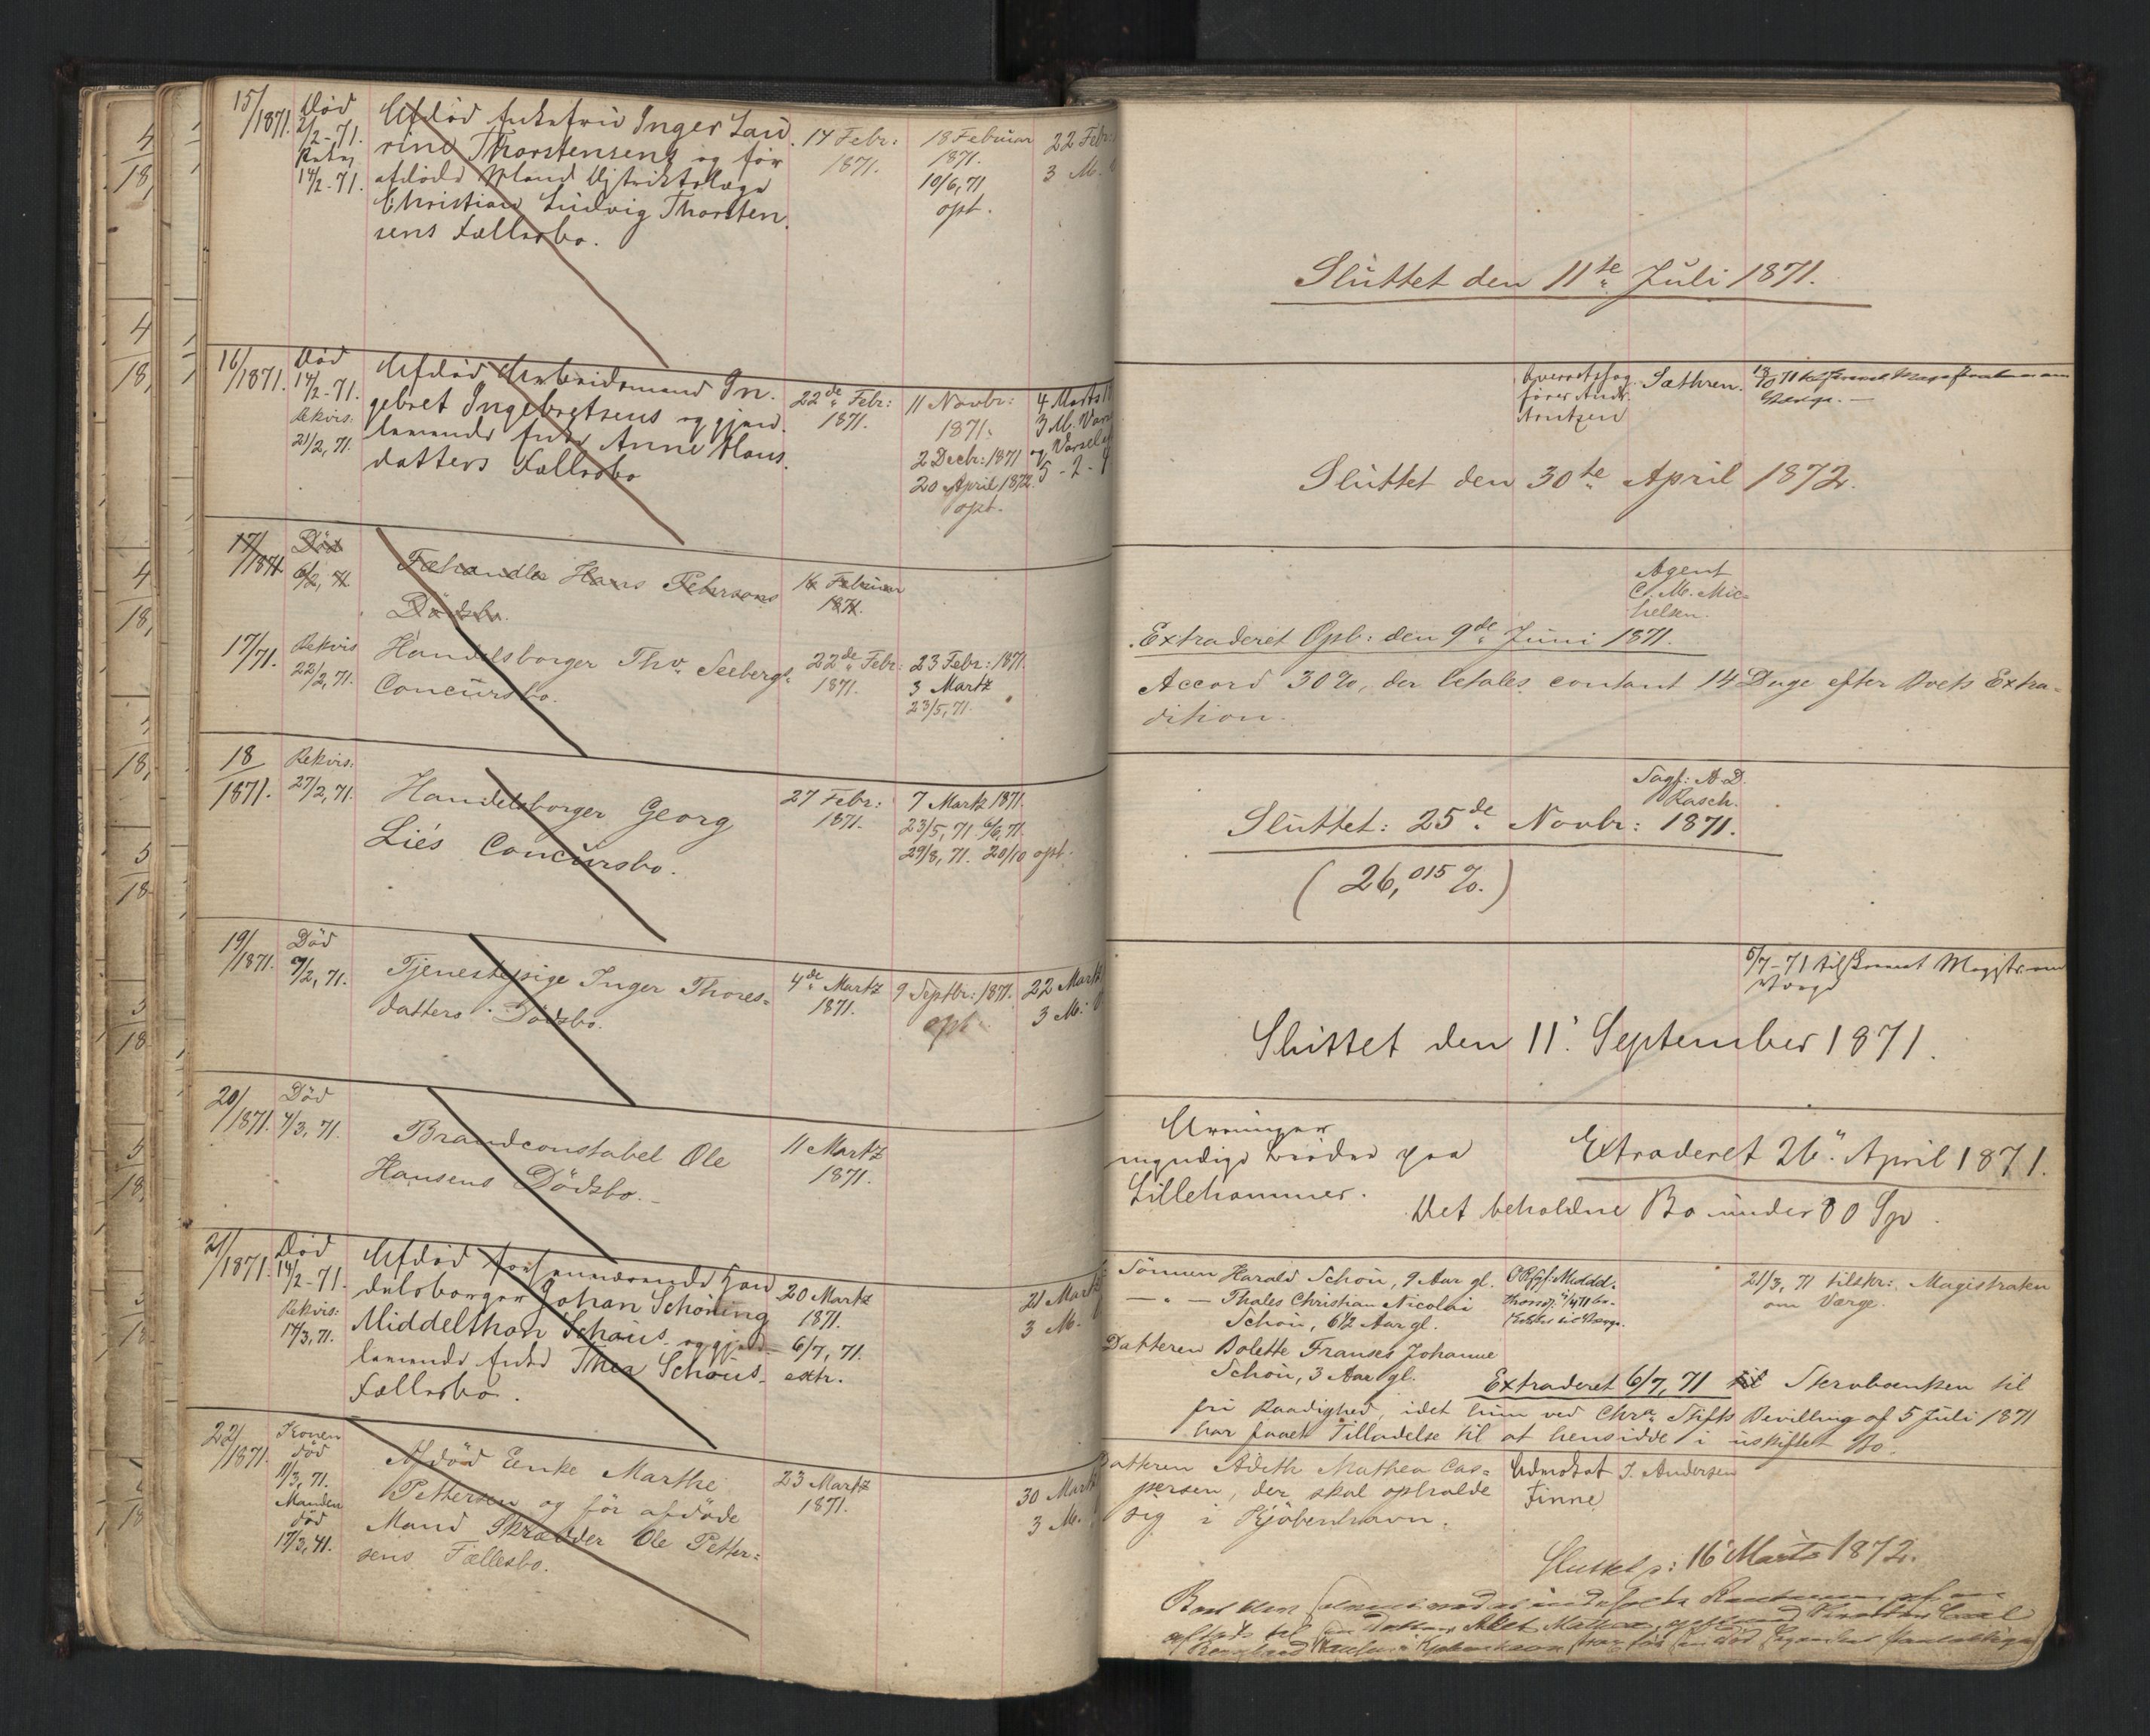 15/1871.
Död
2/2-71.
14/2-71.
Afdöd Enkefru Inger Lau
rine Thorstensens og før
afdöde Mand Distriktslæge
Christian Ludvig Thorsten
sens Fællesbo.
17 Febr:
1871.
18 Februar
1871.
10/6, 71
opt.
22 Febr:
3 M.
Sluttet den 11te Juli 1871.
16/1871.
Död
14/2-71.
Rekvis:
21/2, 71.
Afdöd Arbeidsmand In
gebret Ingebretsens og gjen
levende Enke Anne Hans
datters Fællesbo
22de Febr:
1871.
11 Novbr:
1871.
2 Decbr: 1871
20 April 1872.
opt.
4 Marts
3 M. Vars
og Varsel
5-2-
Overretssag
fører Andr.
Arntzen
Sæthren.
Sluttet den 30te April 1872.
17/1871.
Död
6/2, 71
Fæhandler Hans Pehrsons
Dödsbo.
16 Februar
1871.
17/71.
Rekvis
22/2, 71.
Handelsborger Thv. Seebergs
Concursbo.
22de Febr:
1871.
23 Febr: 1871.
3 Martz
23/5, 71.
Agent
C. M. Mic=
helsen.
Extraderet Opb: den 9de Juni 1871.
Accord 30%, der betales contant 14 Dage efter Boets Extra=
dition.
18/1871.
Rekvis:
27/2, 71.
Handelsborger Georg
Lie's Concursbo.
27 Febr:
1871.
7 Martz 1871.
23/5, 71 6/6, 71.
29/8, 71. 20/10 opt.
Sagf: A. D.
Rasch.
Sluttet: 25de Novbr: 1871.
(26,015 %.)
19/1871.
Död
7/2, 71.
Tjenestepige Inger Thores=
datters Dödsbo.
4de Martz
1871.
9 Septbr: 1871.
opt.
22 Martz
3 M:
5/7-71 til
Sluttet den 11' September 1871.
20/1871.
Död
4/3, 71.
Brandconstabel Ole
Hansens Dödsbo.-
11 Martz
1871.
Arvinger
myndige Brødre paa
Lillehammer.
Extraderet 26" April 1871.
Det beholdne Bo under 80 Sp.
21/1871.
Död
14/2-71.
Rekvis:
17/3, 71.
Afdöd forhenværende Han
delsborger Johan Schöning
Middelthon Schöus og gjen
levende Enke Thea Schöus
Fællesbo.
20 Martz
1871.
6/7, 71.
extr.
21 Martz
3 M.
Sönnen Harald Schou, 9 Aar gl.
— " — Thales Christian Nicolai
Schou, 6½ Aar gl.
Datteren Bolette Franses Johanne
Schou, 3 Aar gl.
21/3, 71 tilskr: Magistraten
om Værge.
Extraderet 6/7, 71 til Skrubanken til
fri Raadighed, idet hun ved Chra Stifts Bevilling af 5 Juli 1871
har faaet Tilladelse til at hensidde i uskiftet Bo.
22/1871.
Konen
död
11/3, 71.
Manden
död
17/3, 41.
Afdöd Enke Marthe
Pettersen og för afdöde
Mand Skrædder Ole Petter=
sens Fællesbo.
23 Martz
1871.
30 Martz
3 M.
Datteren Adith Mathea Cas=
persen, der skal opholde
sig i Kjöbenhavn.
J. Andersen
Finne
Sluttet p: 16 Marts 1872.